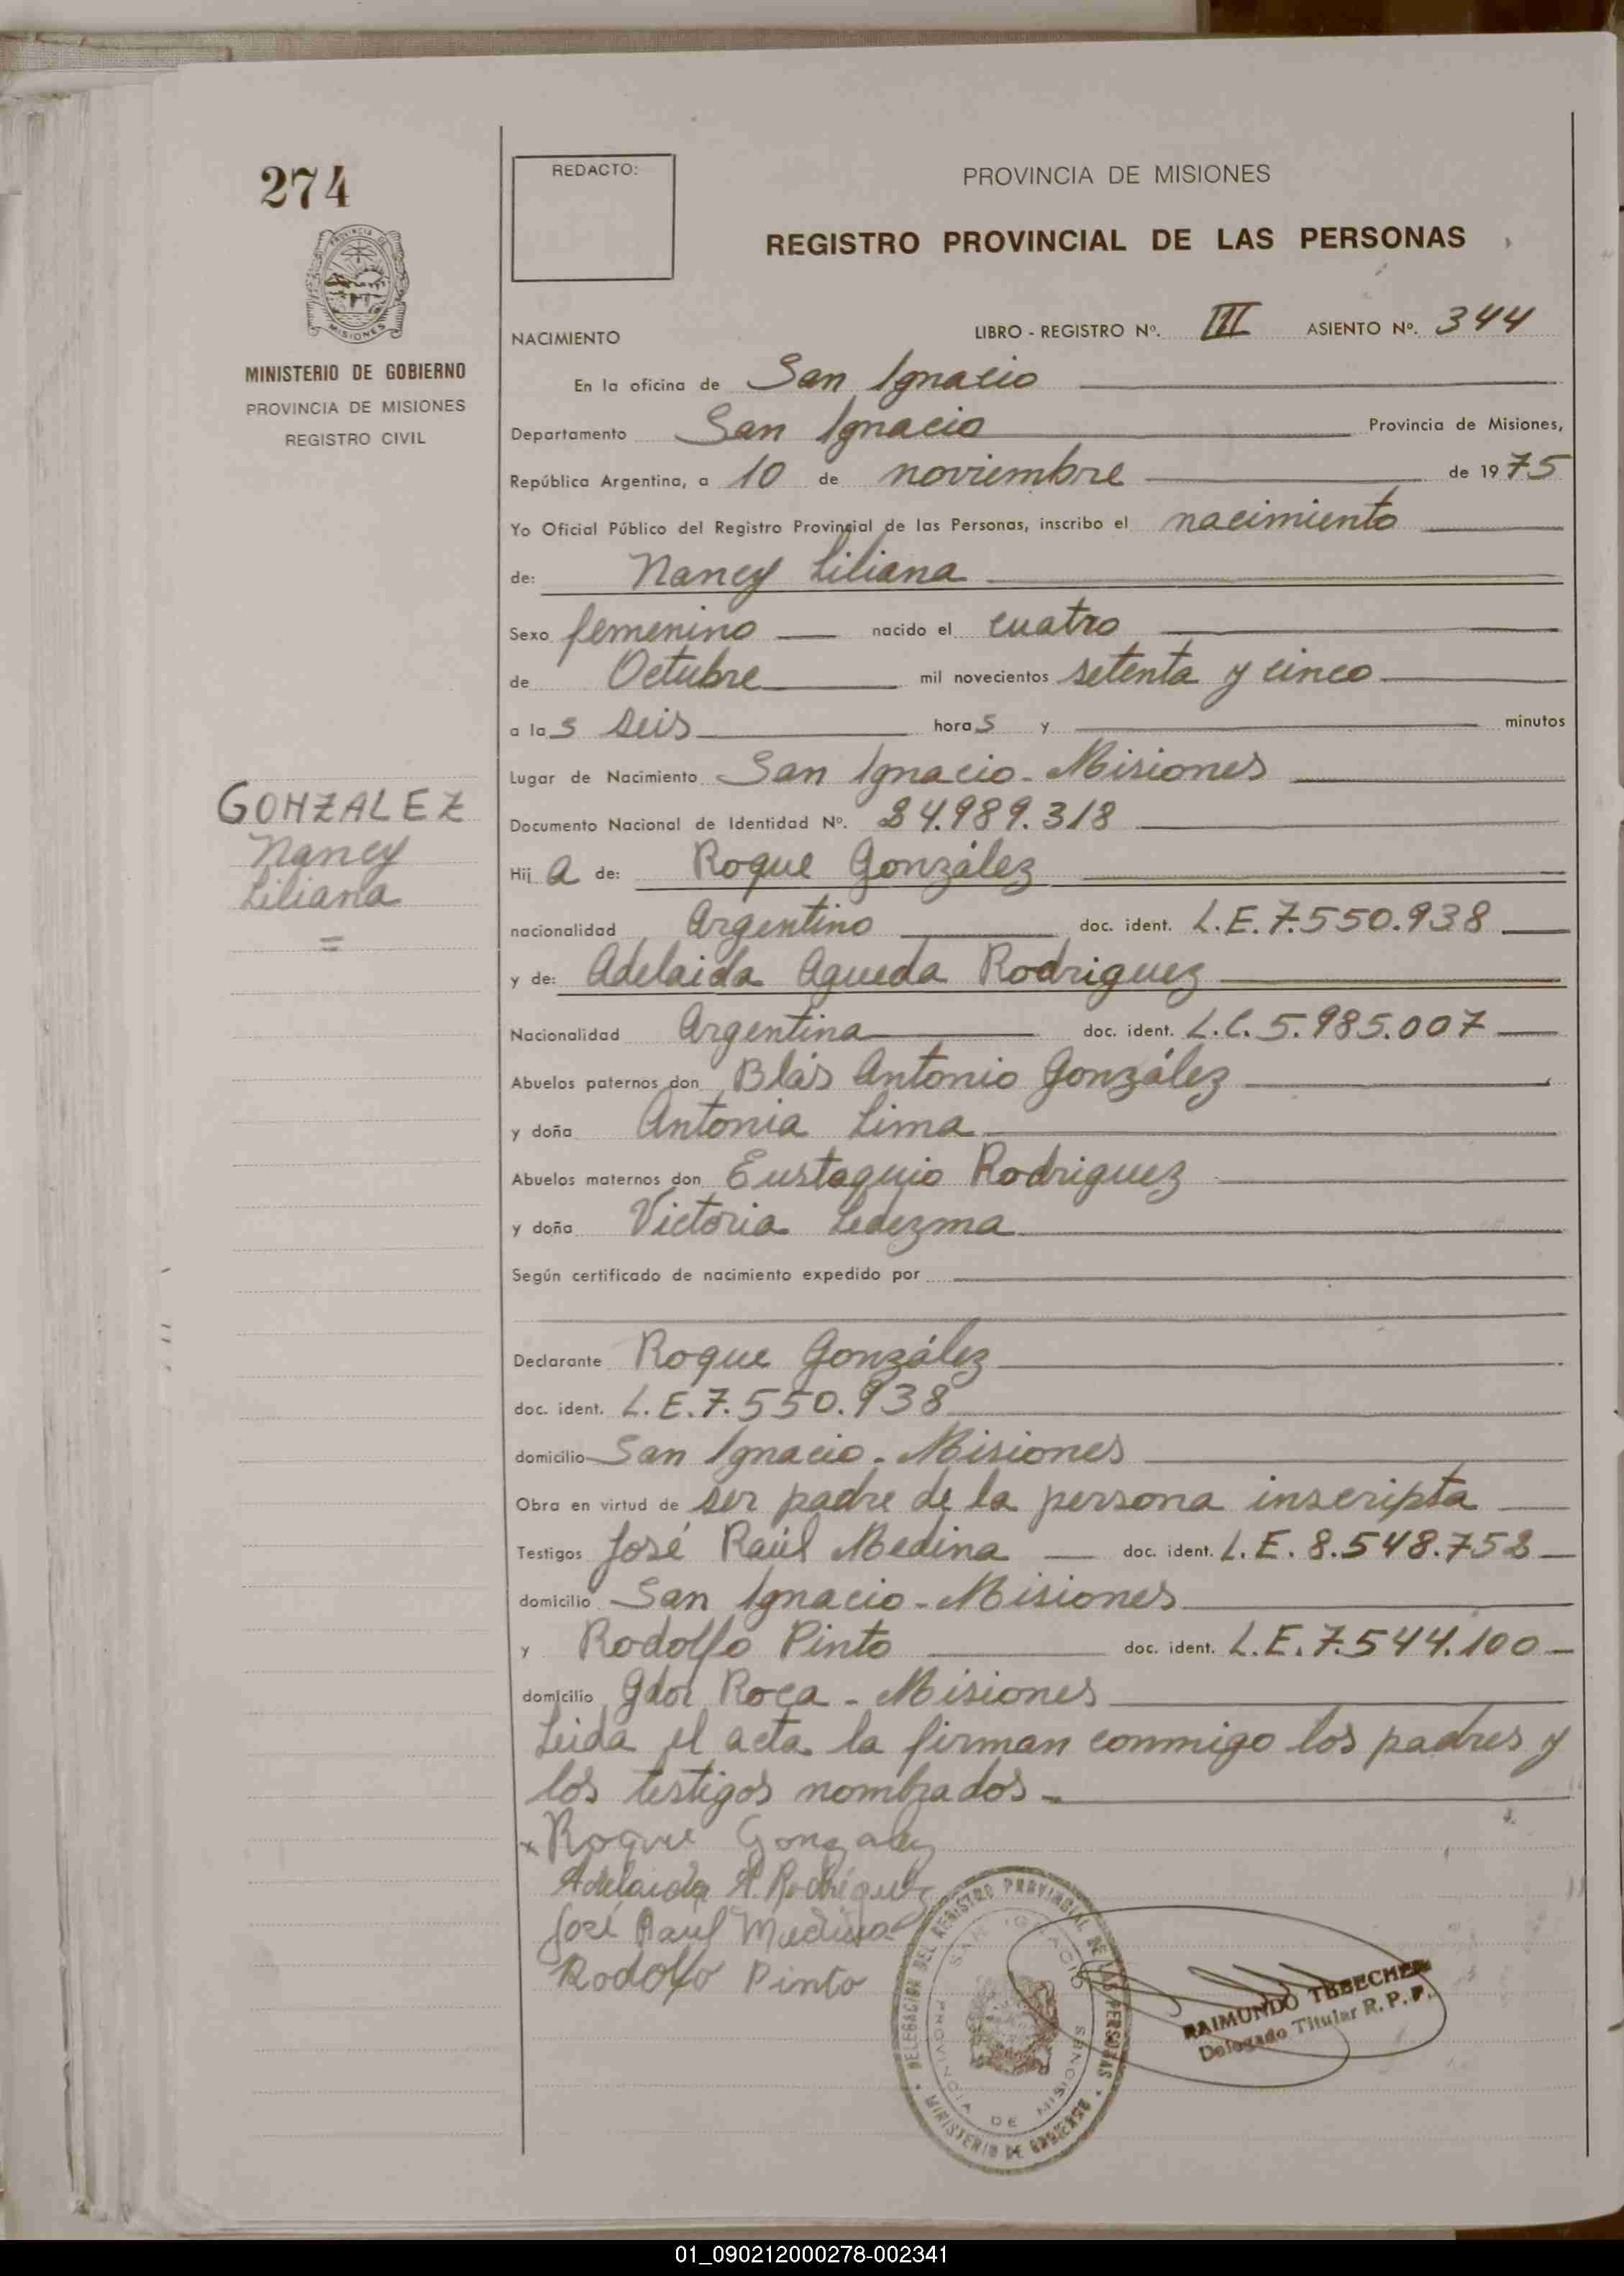 274
PROVINCIA DE
MISIONES
MINISTERIO DE GOBIERNO
PROVINCIA DE MISIONES
REGISTRO CIVIL
REDACTO:
PROVINCIA DE MISIONES
REGISTRO PROVINCIAL DE LAS PERSONAS
NACIMIENTO LIBRO - REGISTRO Nº. III ASIENTO Nº. 344
En la oficina de San Ignacio
Departamento San Ignacio Provincia de Misiones,
República Argentina, a 10 de noviembre de 1975
Yo Oficial Público del Registro Provincial de las Personas, inscribo el nacimiento
de: Nancy Liliana
Sexo femenino nacido el cuatro
de Octubre mil novecientos setenta y cinco
a las seis horas y minutos
Lugar de Nacimiento San Ignacio - Misiones
GONZALEZ
Nancy
Liliana
=
Documento Nacional de Identidad Nº. 24.989.318
Hija de: Roque González
nacionalidad Argentino doc. ident. L.E. 7.550.938
y de: Adelaida Agueda Rodriguez
Nacionalidad Argentina doc. ident. L.C. 5.985.007
Abuelos paternos don Blás Antonio González
y doña Antonia Lima
Abuelos maternos don Eustaquio Rodriguez
y doña Victoria Ledezma
Según certificado de nacimiento expedido por
Declarante Roque González
doc. ident. L.E. 7.550.938
domicilio San Ignacio - Misiones
Obra en virtud de ser padre de la persona inscripta
Testigos José Raúl Medina doc. ident. L.E. 8.548.752
domicilio San Ignacio - Misiones
y Rodolfo Pinto doc. ident. L.E. 7.544.100
domicilio Gdor Roca - Misiones
Leida el acta la firman conmigo los padres y
los testigos nombrados -
x Roque Gonzalez
Adelaida A. Rodriguez
José Raul Medina
Rodolfo Pinto
DELEGACION DEL REGISTRO PROVINCIAL DE LAS PERSONAS
MINISTERIO DE GOBIERNO
SAN IGNACIO
PROVINCIA DE MISIONES
RAIMUNDO
Delegado Titular R. P. P.
01_090212000278-002341